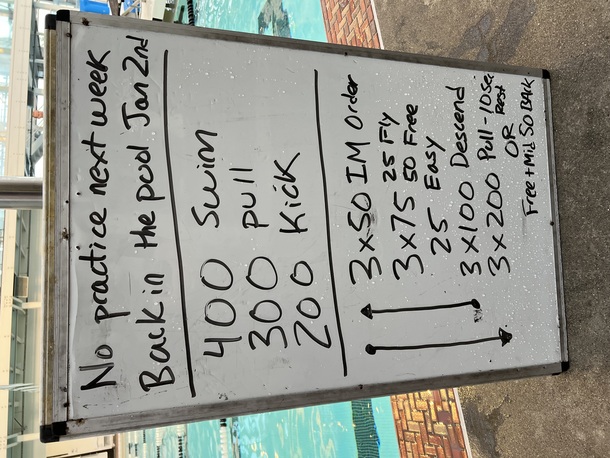 No practice next week
Back in the pool Jan 2nd
400 Swim
300 pull
200 Kick
3x50 IM Order
3x75 25 Fly
50 Free
25 Easy
3x100 Descend
3x200 Pull - 10 Sec
Rest
OR
Free + Mid 50 BAck